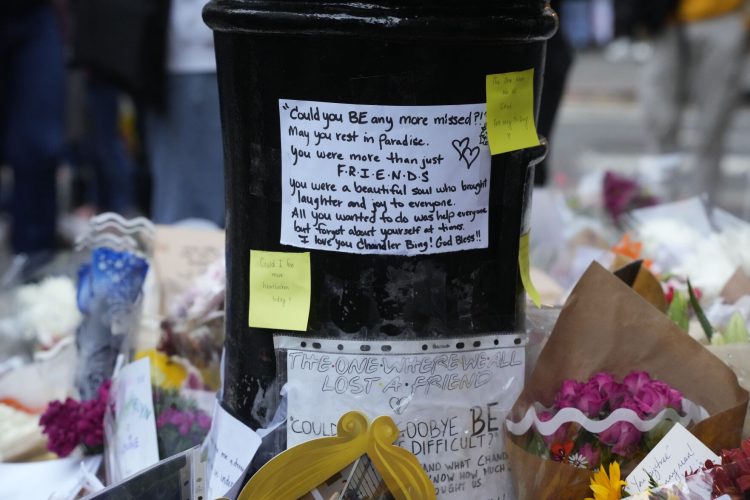 "Could you BE any more missed?!"
May you rest in Paradise.
You were more than just
F·R·I·E·N·D·S
You were a beautiful soul who brought
laughter and joy to everyone.
All you wanted to do was help everyone
but forgot about yourself at times.
I love you Chandler Bing! God Bless!!
Could I be
more
heartbroken
today!
THE ONE WHERE WE ALL
LOST A FRIEND
"COULD
GOODBYE BE
DIFFICULT?"
AND WHAT CHAND
HOW MUCH
OUGHT US